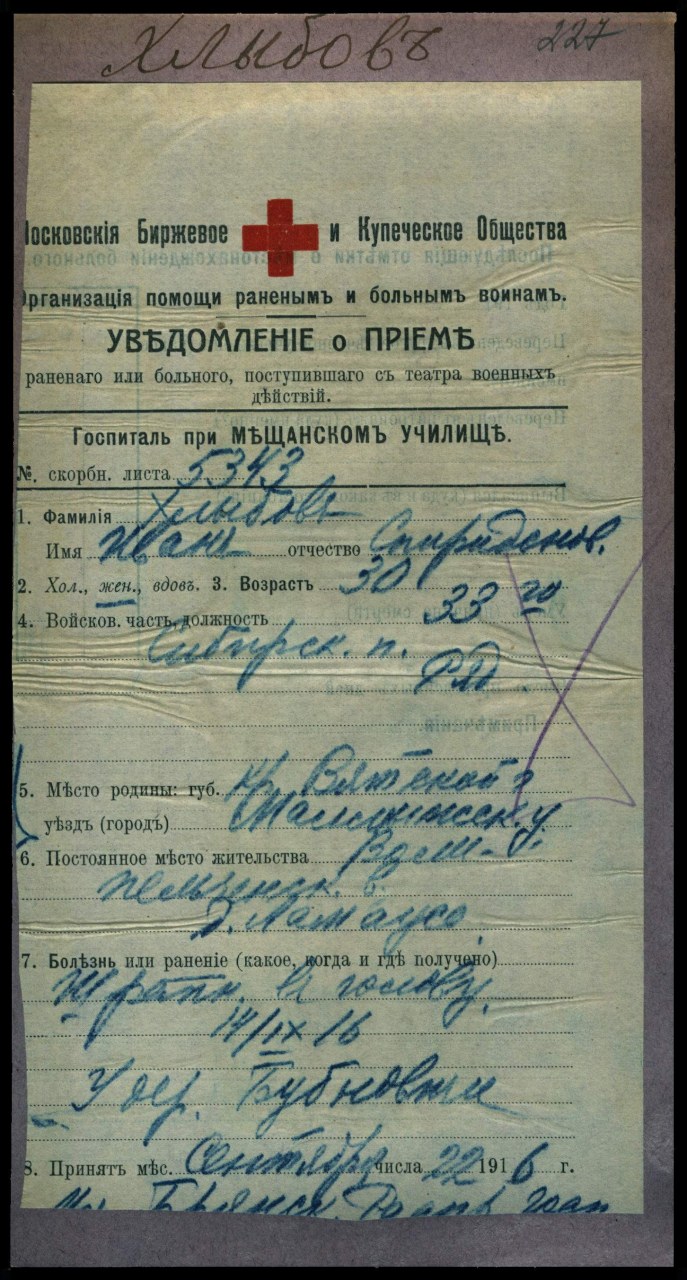 Хлыбовъ 227
Московскія Биржевое и Купеческое Общества
Организація помощи раненымъ и больнымъ воинамъ.
УВѢДОМЛЕНІЕ о ПРІЕМѢ
раненаго или больного, поступившаго съ театра военныхъ
дѣйствій.
Госпиталь при МѢЩАНСКОМЪ УЧИЛИЩѢ.
№. скорбн. листа 5343
1. Фамилія Хлыбовъ
Имя Иванъ отчество Спиридонов.
2. Хол., жен., вдовъ. 3. Возрастъ 30
4. Войсков. часть, должность 33 го
Сибирск. п. Ряд
5. Мѣсто родины: губ. Вятской г
уѣздъ (городъ) Малмыжск. у.
6. Постоянное мѣсто жительства
в.
д.
7. Болѣзнь или раненіе (какое, когда и гдѣ получено)
Шрапн. въ голову.
14/IX 16
У дер. Бубновжи
8. Принятъ мѣс. Сентября числа 22 1916 г.